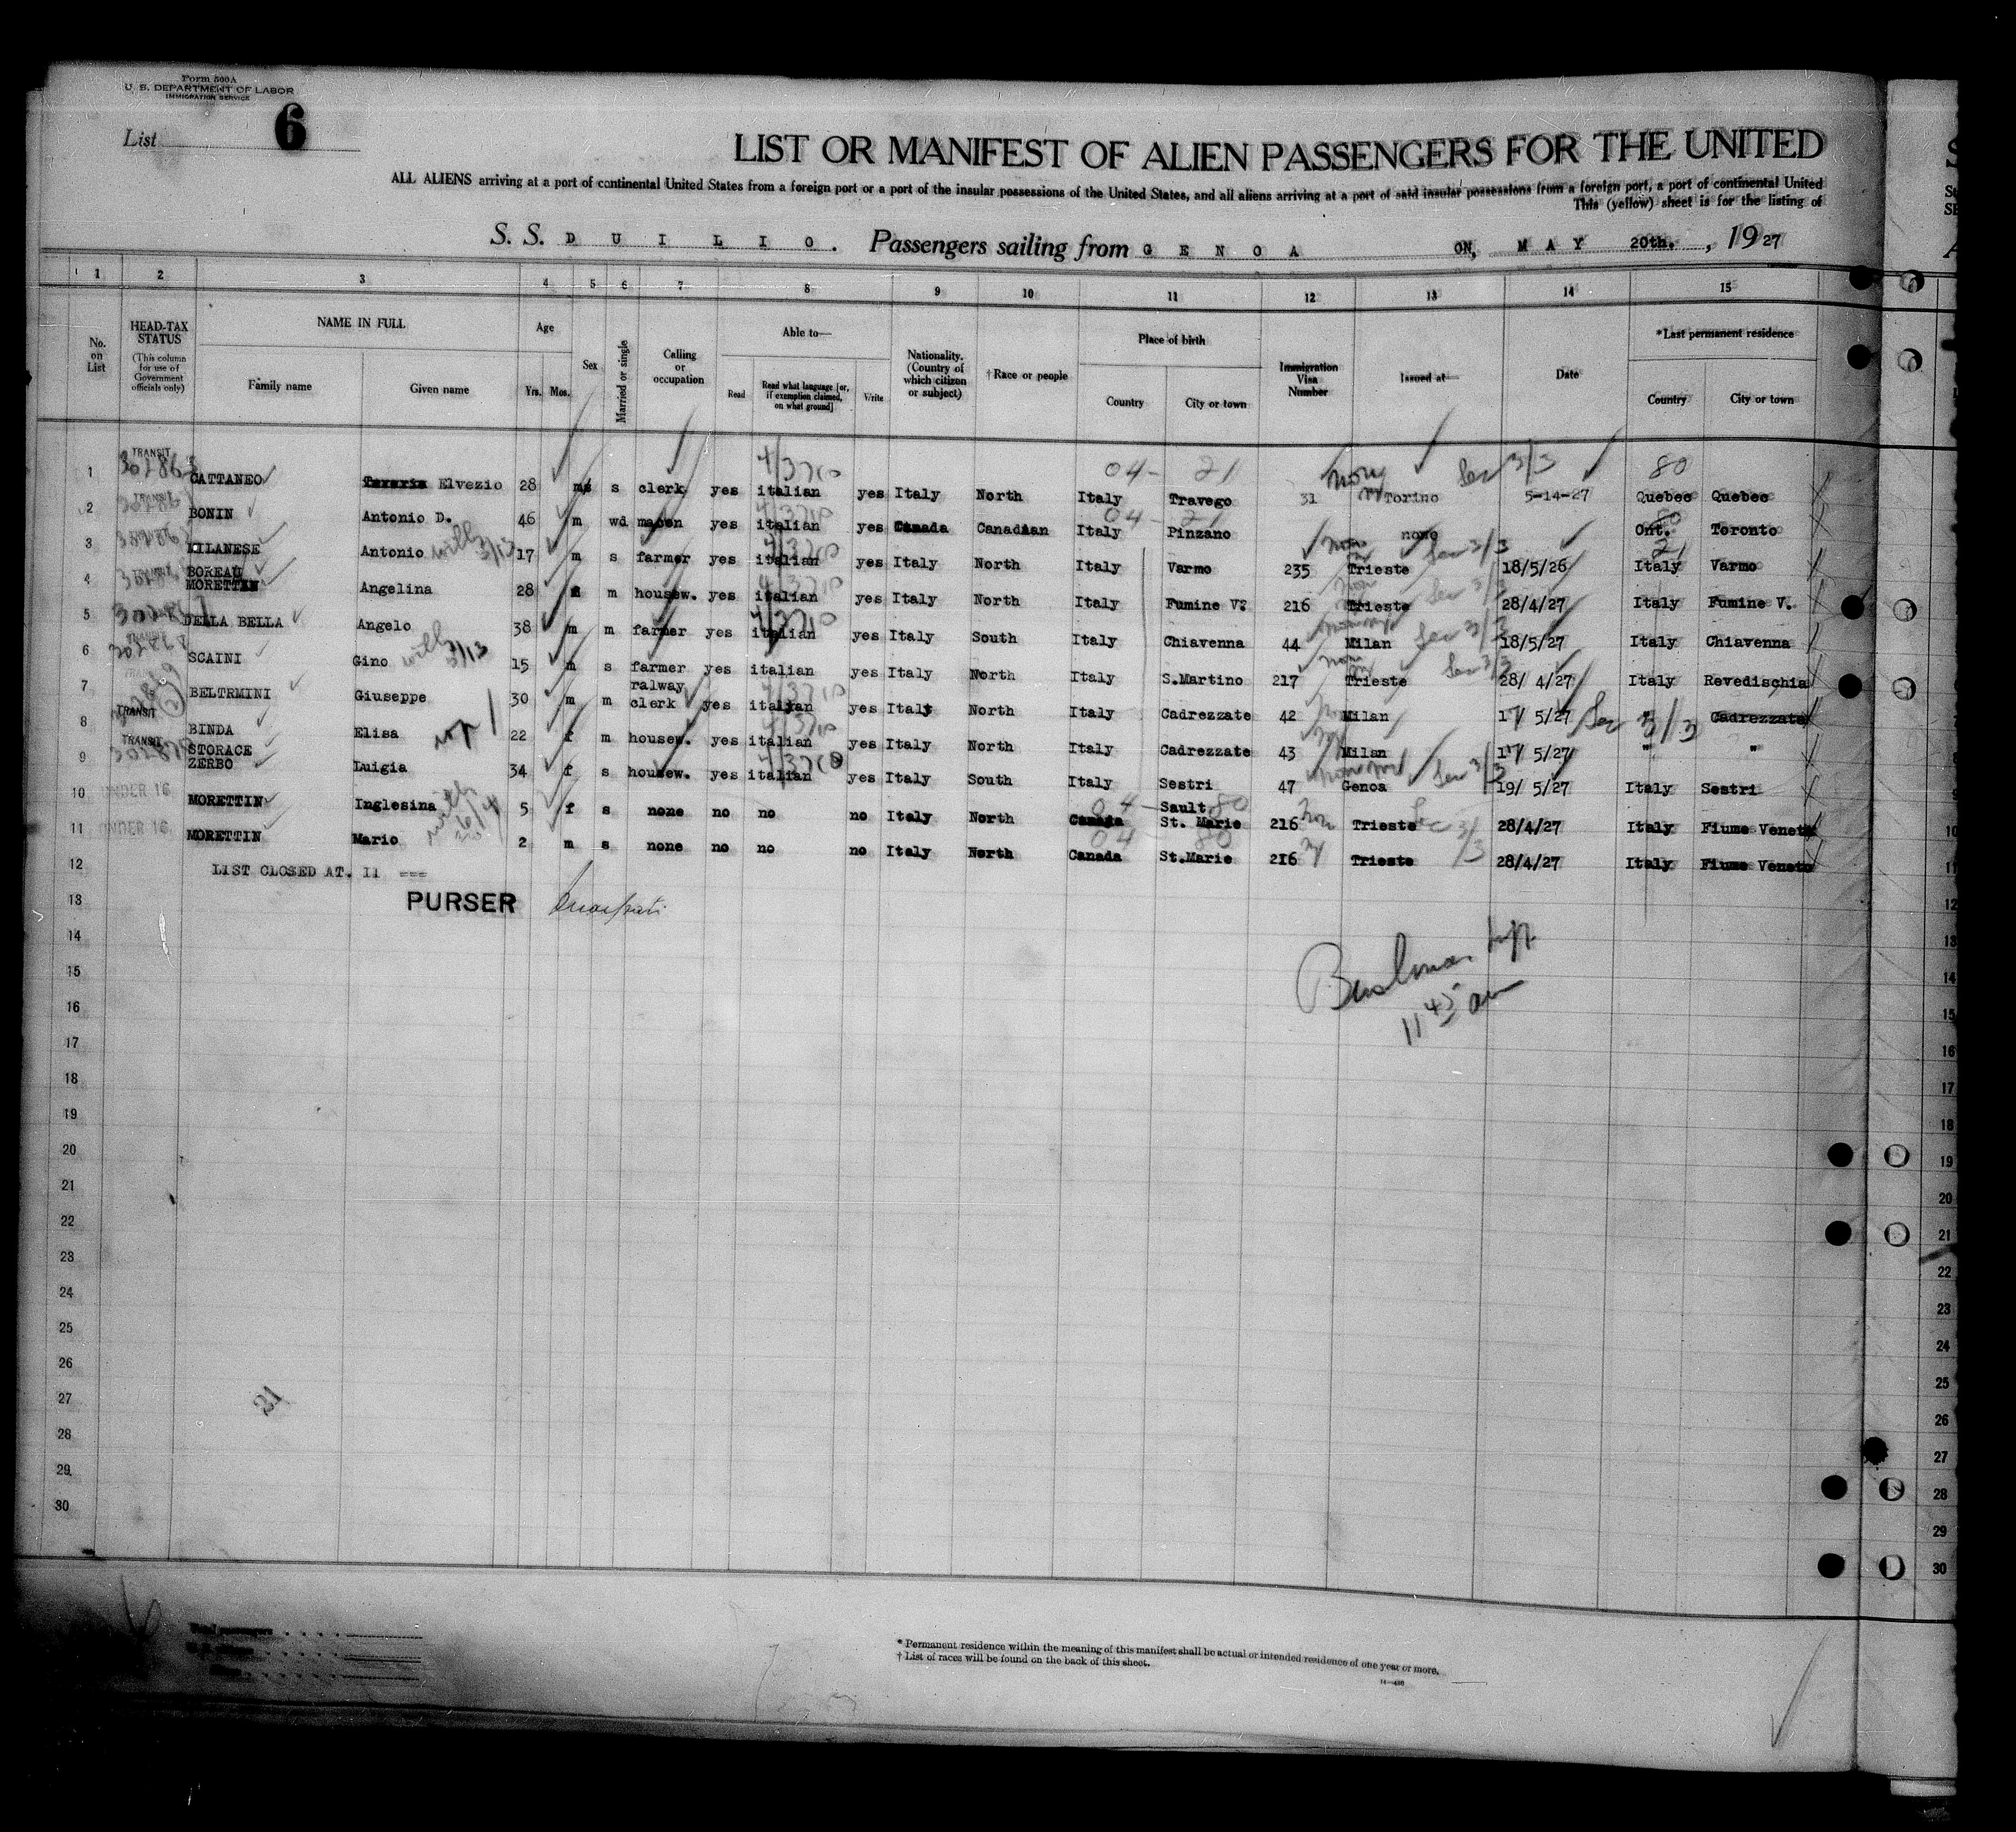 Form 500A
U. S. DEPARTMENT OF LABOR
IMMIGRATION SERVICE
List 6
LIST OR MANIFEST OF ALIEN PASSENGERS FOR THE UNITED
ALL ALIENS arriving at a port of continental United States from a foreign port or a port of the insular possessions of the United States, and all aliens arriving at a port of said insular possessions from a foreign port, a port of continental United
This (yellow) sheet is for the listing of
S. S. DUILIO. Passengers sailing from GENOA ON, MAY 20th., 1927
1 2 3 4 5 6 7 8 9 10 11 12 13 14 15
No. on List
HEAD-TAX STATUS (This column for use of Government officials only)
NAME IN FULL Family name Given name
Age Yrs. Mos.
Sex
Married or single
Calling or occupation
Able to— Read Read what language [or, if exemption claimed, on what ground] Write
Nationality. (Country of which citizen or subject)
†Race or people
Place of birth Country City or town
Immigration Visa Number
Issued at—
Date
*Last permanent residence Country City or town
1 TRANSIT CATTANEO Elvezio 28 m s clerk yes italian yes Italy North Italy Travego 31 Torino 5-14-27 Quebec Quebec
2 TRANSIT BONIN Antonio D. 46 m wd mason yes italian yes Canada Canadian Italy Pinzano none Ont. Toronto
3 MILANESE Antonio 17 m s farmer yes italian yes Italy North Italy Varmo 235 Trieste 18/5/26 Italy Varmo
4 TRANSIT BOREAU MORETTIN Angelina 28 m housew. yes italian yes Italy North Italy Fumine V. 216 Trieste 28/4/27 Italy Fumine V.
5 DELLA BELLA Angelo 38 m m farmer yes italian yes Italy South Italy Chiavenna 44 Milan 18/5/27 Italy Chiavenna
6 SCAINI Gino 15 m s farmer yes italian yes Italy North Italy S.Martino 217 Trieste 28/ 4/27 Italy Revedischia
7 BELTRMINI Giuseppe 30 m m ralway clerk yes italian yes Italy North Italy Cadrezzate 42 Milan 17/ 5/27 " Cadrezzate
8 TRANSIT BINDA Elisa 22 f m housew. yes italian yes Italy North Italy Cadrezzate 43 Milan 17/ 5/27 " "
9 TRANSIT STORACE ZERBO Luigia 34 f s housew. yes italian yes Italy South Italy Sestri 47 Genoa 19/ 5/27 Italy Sestri
10 UNDER 16 MORETTIN Inglesina 5 f s none no no no Italy North Canada Sault St. Marie 216 Trieste 28/4/27 Italy Fiume Veneto
11 UNDER 16 MORETTIN Mario 2 m s none no no no Italy North Canada St.Marie 216 Trieste 28/4/27 Italy Fiume Veneto
12 LIST CLOSED AT. 11 ===
13 PURSER
14
15
16
11 45 am
17
18
19
20
21
22
23
24
25
26
27
28
29
30
21
* Permanent residence within the meaning of this manifest shall be actual or intended residence of one year or more.
† List of races will be found on the back of this sheet.